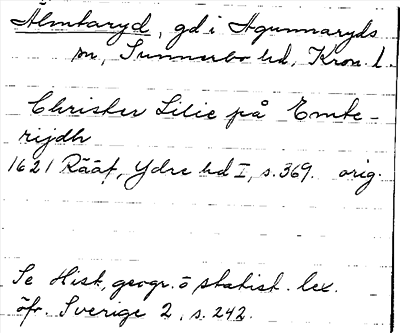 Älmtaryd, gd i Agunnaryds
sn, Sunnerbo hd, Kron. l.
Christer Lilie på Emte-
rijdh
1621 Rääf, Ydre hd I, s. 369. orig.
Se Hist. geogr. o statist. lex.
öfv. Sverige 2, s. 242.